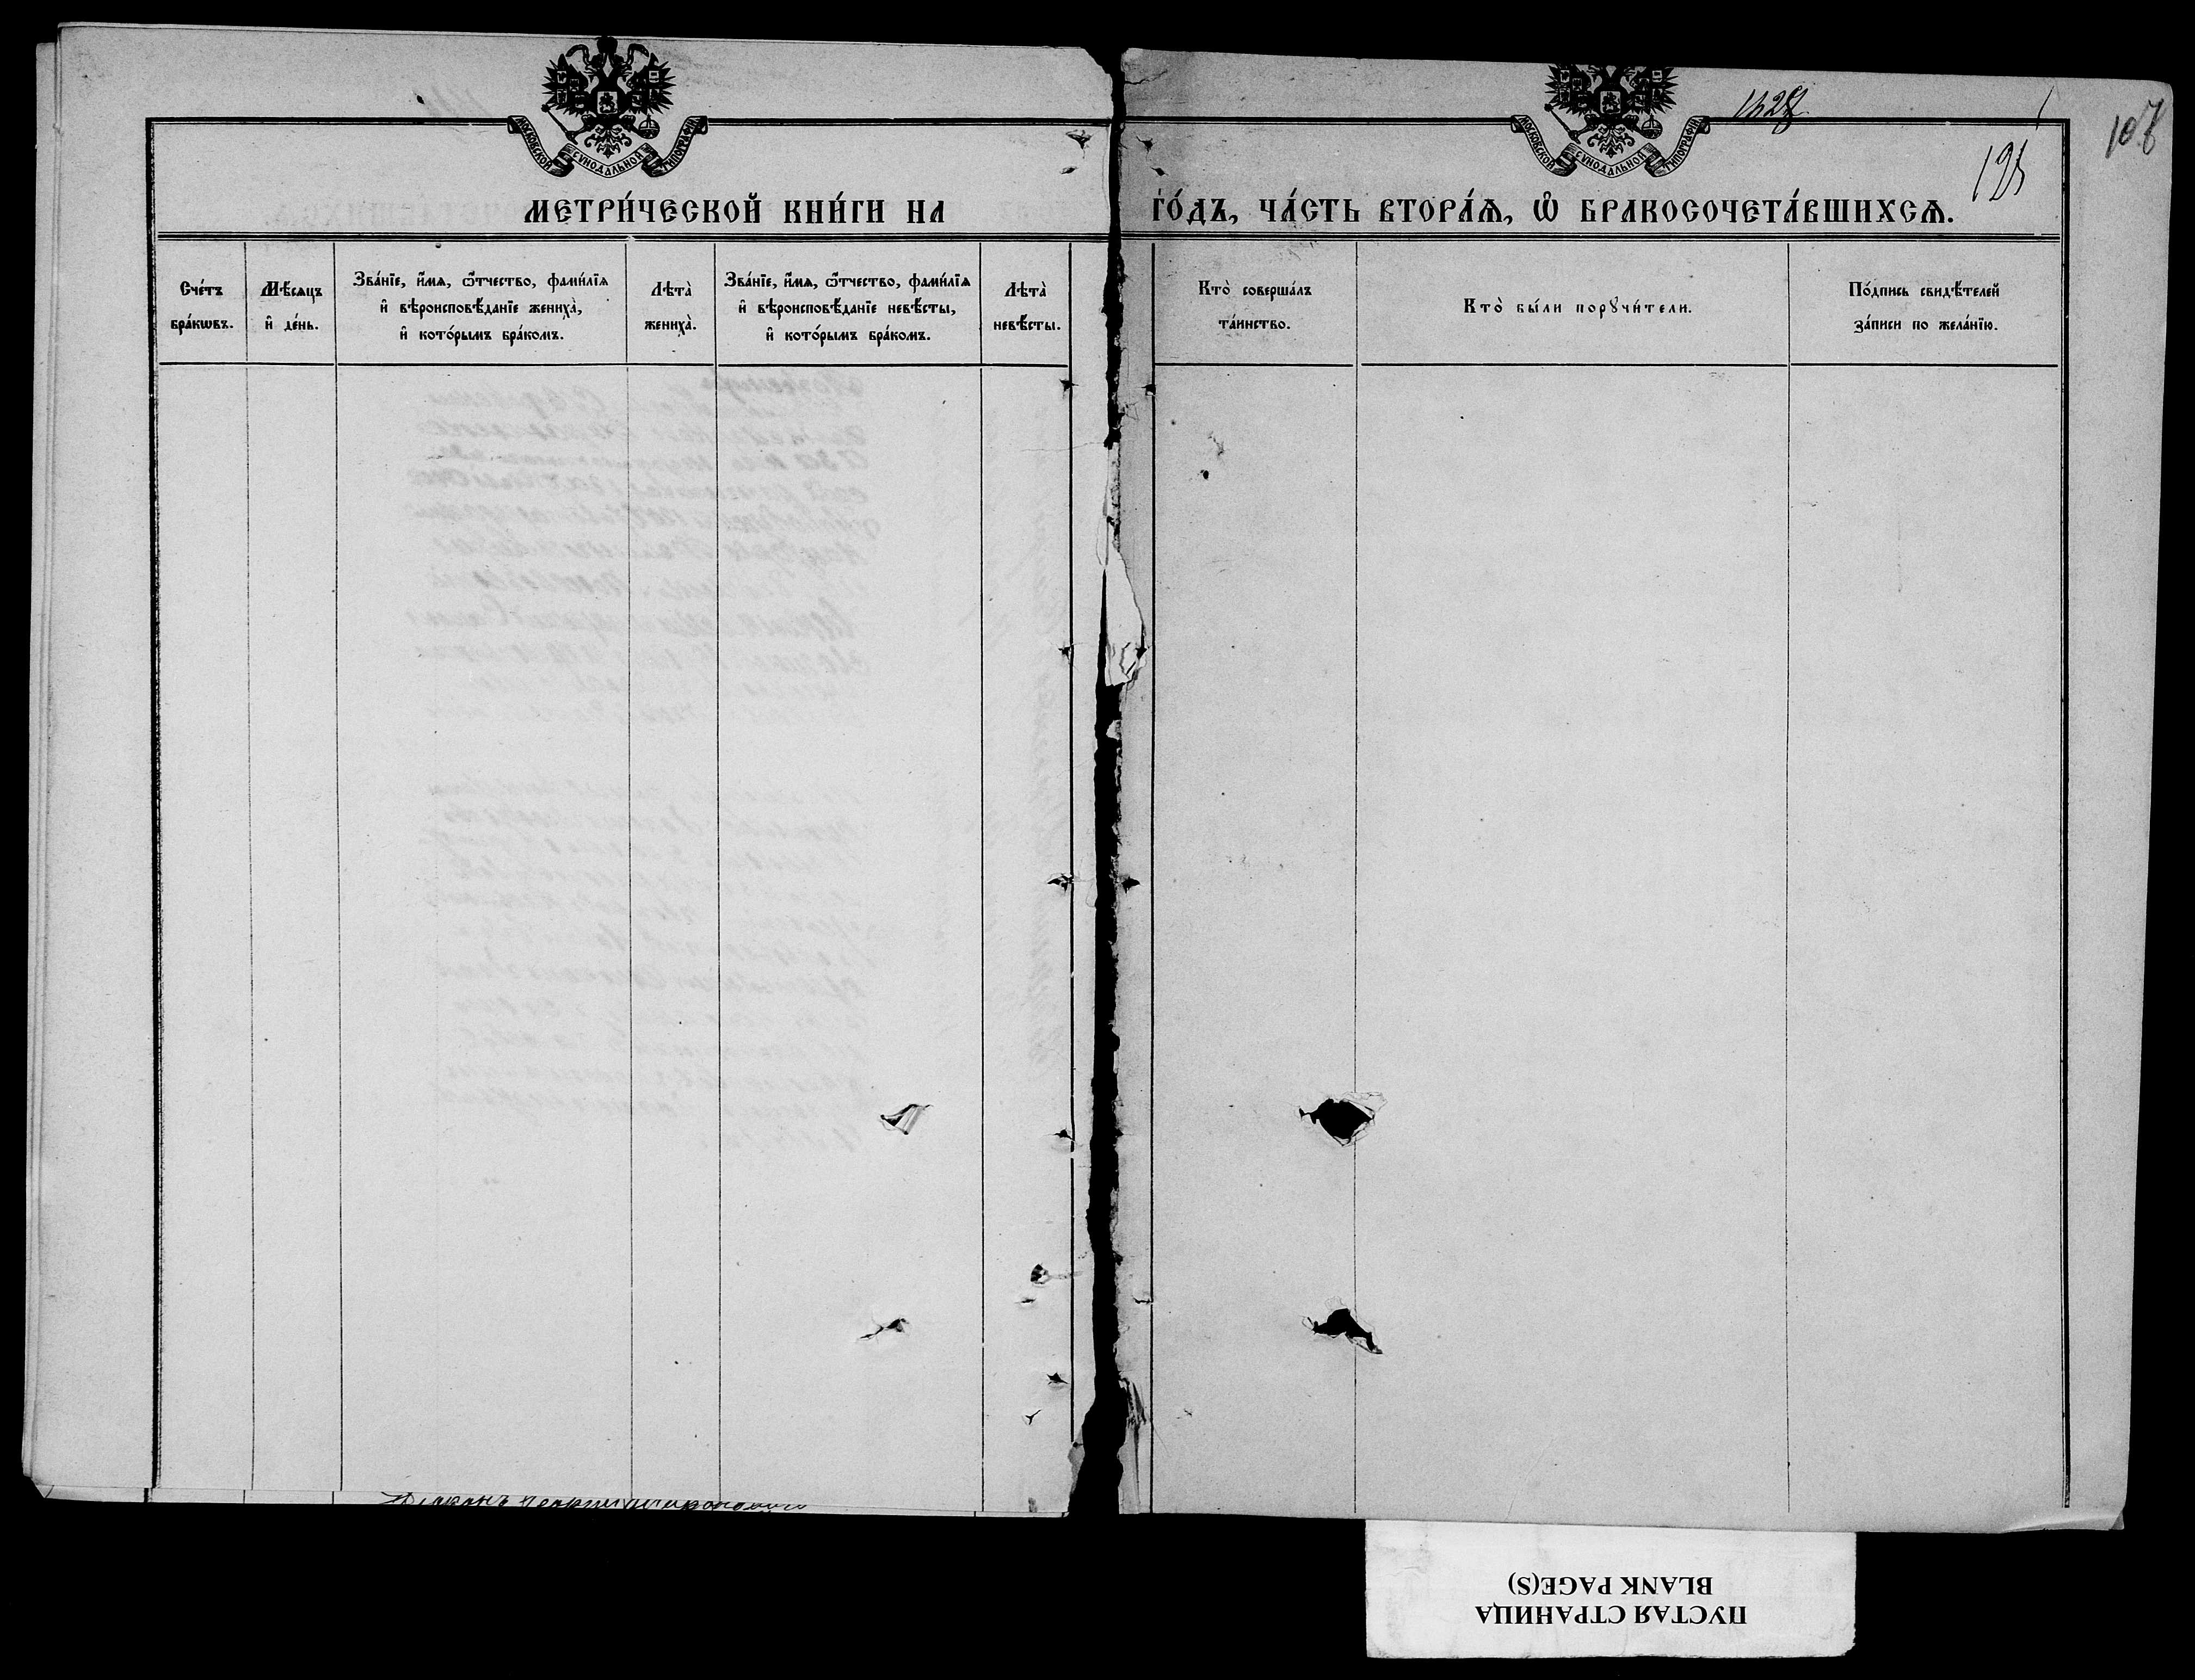 МОСКОВСКОЙ СѴНОДАЛЬНОЙ ТИПОГРАФІИ
МОСКОВСКОЙ СѴНОДАЛЬНОЙ ТИПОГРАФІИ
МЕТРИ́ЧЕСКОЙ КНИ́ГИ НА
ГО́ДЪ, ЧА́СТЬ ВТОРА́Ѧ, Ѽ БРАКОСОЧЕТА́ВШИХСѦ.
Сче́тъ
бра́кѡвъ.
Мѣ́сяцъ
и҆ де́нь.
Зва́нїе, и҆́мѧ, ѻ҆́тчество, фами́лїѧ
и҆ вѣроисповѣ́данїе жениха̀,
и҆ кото́рымъ бра́комъ.
Лѣта̀
жениха̀.
Зва́нїе, и҆́мѧ, ѻ҆́тчество, фами́лїѧ
и҆ вѣроисповѣ́данїе невѣ́сты,
и҆ кото́рымъ бра́комъ.
Лѣта̀
невѣ́сты.
Кто̀ соверша́лъ
та́инство.
Кто̀ бы́ли порꙋчи́тели.
По́дпись свидѣ́телей
за́писи по жела́нїю.
ПУСТАЯ СТРАНИЦА
BLANK PAGE(S)